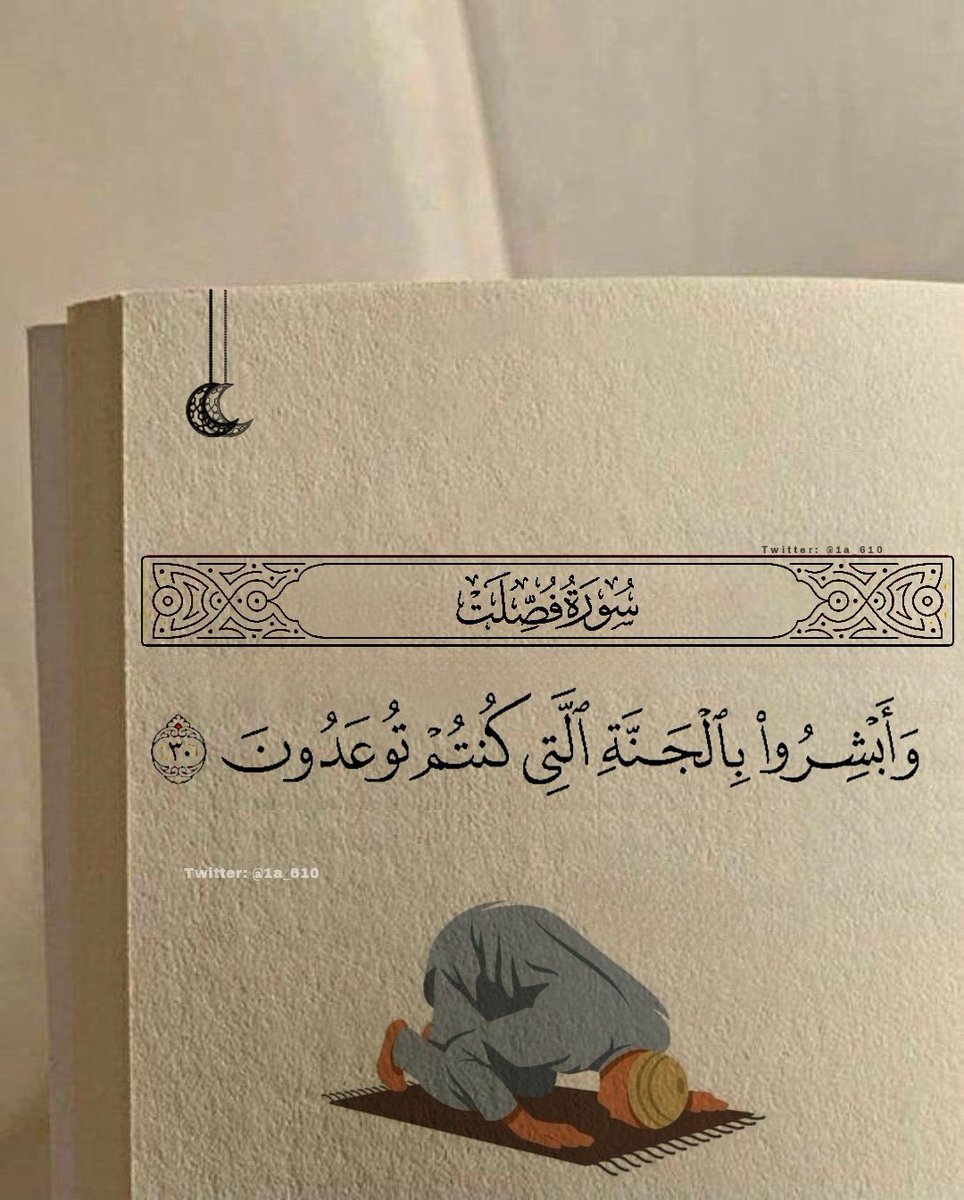 Twitter: @1a_610
سُورَةُ فُصِّلَتْ
وَأَبْشِرُوا۟ بِٱلْجَنَّةِ ٱلَّتِى كُنتُمْ تُوعَدُونَ ٣٠
Twitter: @1a_610